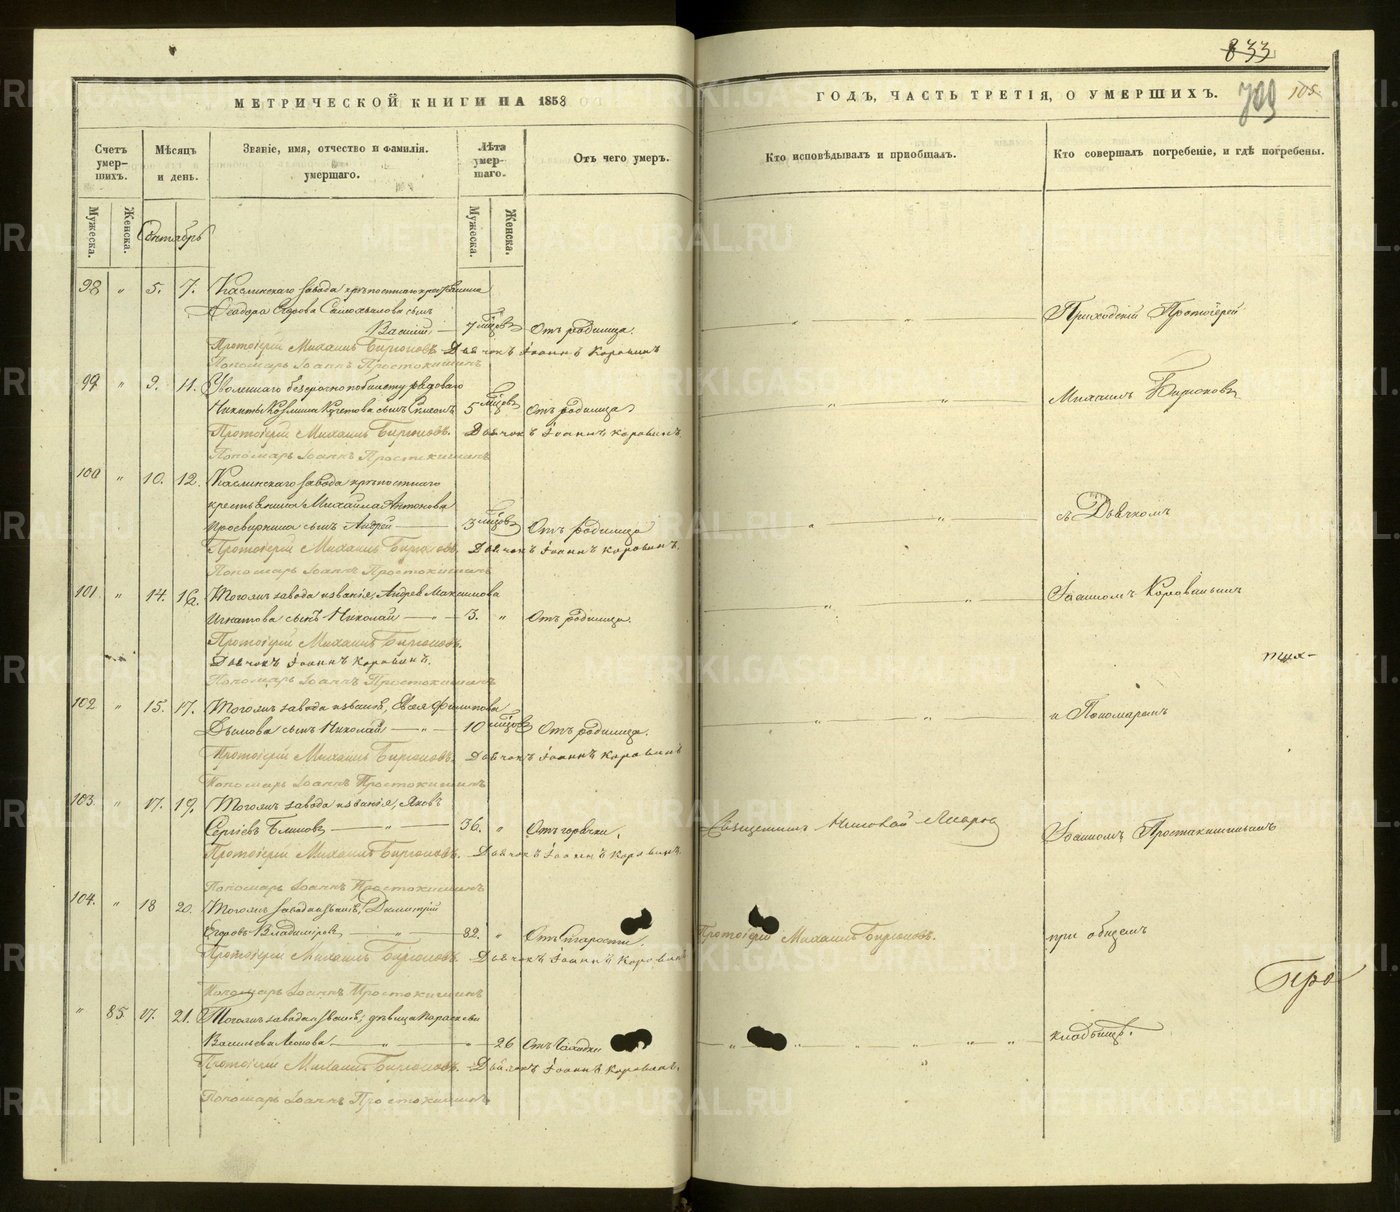 833
МЕТРИЧЕСКОЙ КНИГИ НА 1858
ГОДЪ, ЧАСТЬ ТРЕТІЯ, О УМЕРШИХЪ.
709
105
Счетъ умер-шихъ.
Мѣсяцъ и день.
Званіе, имя, отчество и фамилія. умершаго.
Лѣта умер-шаго.
Отъ чего умеръ.
Кто исповѣдывалъ и пріобщалъ.
Кто совершалъ погребеніе, и гдѣ погребены.
Мужеска.
Женска.
Сентябрь
Мужеска.
Женска.
98 " 5. 7. Каслинскаго завода крѣпостнаго крестьянина
Ѳеодора Егорова сынъ
Василій — 7 мѣсяцов Отъ родимца.
Приходскій Протоіерей
Протоіерей Михаилъ Бирюковъ Дьячокъ Іоаннъ Коровинъ
Пономарь Іоаннъ Простокишинъ
99 " 9. 11. Уволеннаго безсрочно по билету рядоваго
Никиты Козмина Кунгова сынъ Симеонъ 5 мѣсяцов Отъ родимца
Михаилъ Бирюковъ
Протоіерей Михаилъ Бирюковъ. Дьячокъ Іоаннъ Коровинъ.
Пономарь Іоаннъ Простокишинъ
100 " 10. 12. Каслинскаго завода крѣпостнаго
крестьянина Михаила Антонова
Просвирнина сынъ Андрей — 3 мѣсяцов Отъ родимца
съ Дьячкомъ
Протоіерей Михаилъ Бирюковъ. Дьячокъ Іоаннъ Коровинъ.
Пономарь Іоаннъ Простокишинъ
101 " 14. 16. Тогожъ завода и званія, Андрея Максимова
Игнатова сынъ Николай — " — 3. " Отъ родимца.
Іоанномъ Коровинымъ
Протоіерей Михаилъ Бирюковъ.
Дьячокъ Іоаннъ Коровинъ.
Пономарь Іоаннъ Простокишинъ
102 " 15. 17. Тогожъ завода и званія, Филипова
Дымова сынъ Николай — " — 10 мѣсяцов Отъ родимца.
и Пономаремъ
Протоіерей Михаилъ Бирюковъ. Дьячокъ Іоаннъ Коровинъ
Пономарь Іоаннъ Простокишинъ
103. " 17. 19. Тогожъ завода и званія, Яковъ
Сергіевъ Блиновъ — " — 36. " Отъ горячки.
Священникъ Николай
Іоанномъ Простокишинымъ
Протоіерей Михаилъ Бирюковъ. Дьячокъ Іоаннъ Коровинъ.
Пономарь Іоаннъ Простокишинъ
104. " 18 20. Тогожъ завода и званія, Димитрій
Егоровъ Владиміровъ — " — 82. " Отъ Старости.
Протоіерей Михаилъ Бирюковъ.
при общемъ
Протоіерей Михаилъ Бирюковъ. Дьячокъ Іоаннъ Коровинъ
Пономарь Іоаннъ Простокишинъ
Про
" 85. 17. 21. Тогожъ завода и званія, дѣвица Параскева
Васильева Леонова — " — " 26 Отъ Чахотки
кладбищѣ.
Протоіерей Михаилъ Бирюковъ. Дьячокъ Іоаннъ Коровинъ.
Пономарь Іоаннъ Простокишинъ
METRIKI.GASO-URAL.RU